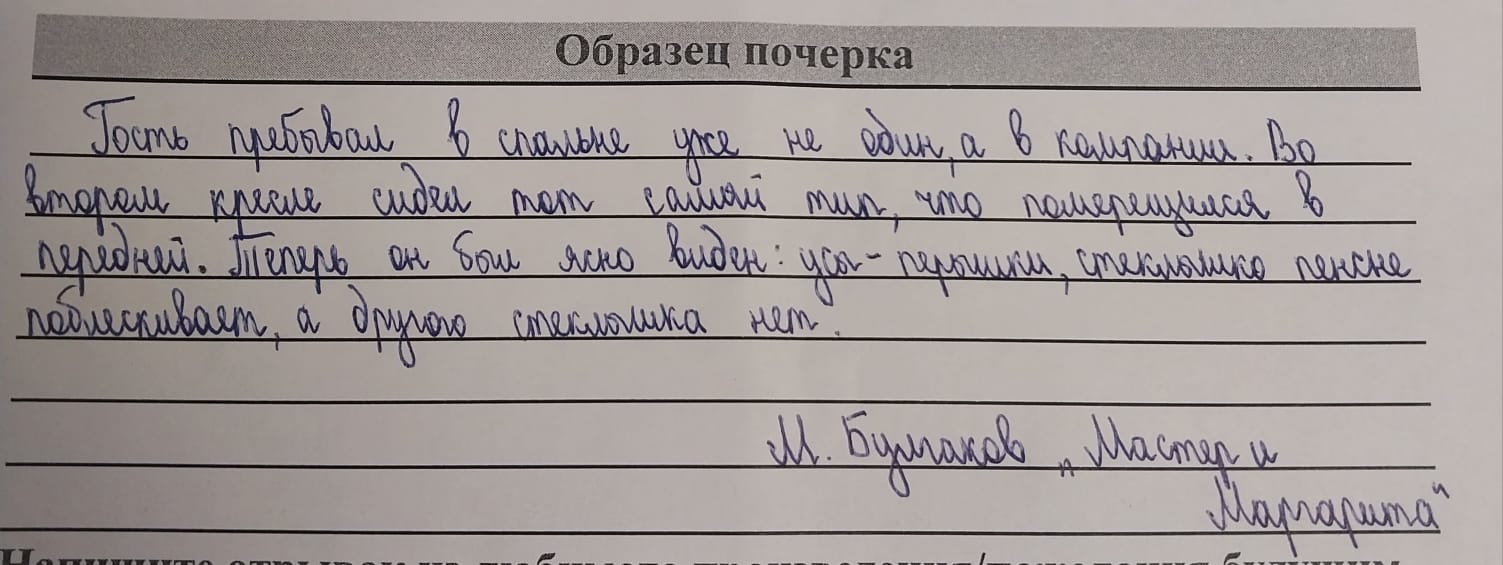 Образец почерка
Гость пребывал в спальне уже не один, а в компании. Во
втором кресле сидел тот самый тип, что померещился в
передней. Теперь он был ясно виден: усы-перышки, стеклышко пенсне
поблескивает, а другого стеклышка нет.
М. Булгаков „Мастер и
Маргарита“
Напишите отрывок из любимого произведения/пожелания будущим